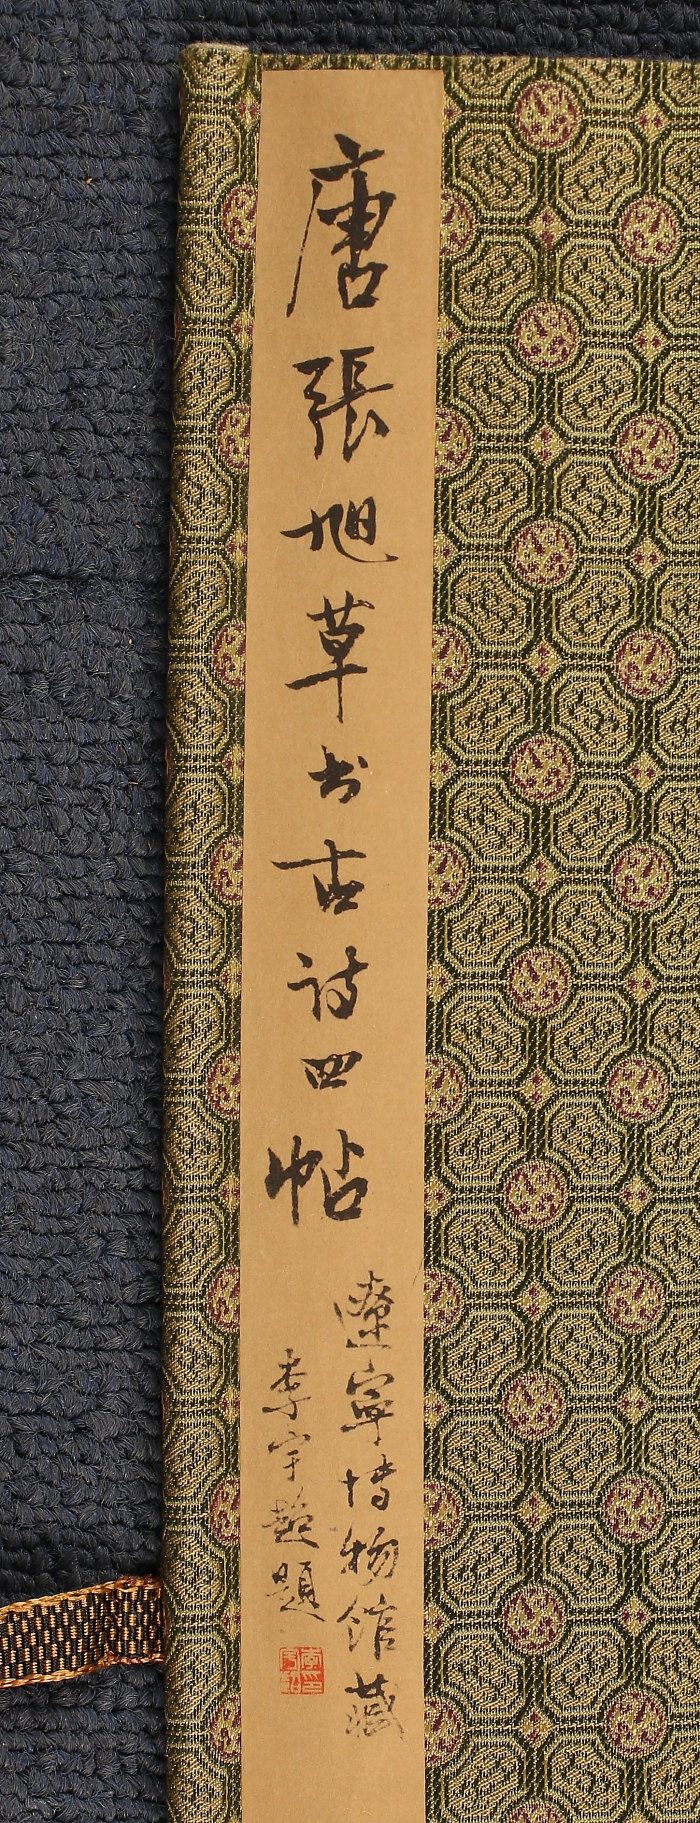 唐張旭草书古詩四帖
遼寧博物館藏
李宇超題